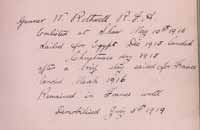 Gunner W. Rothwell R.F.A.
Enlisted at Shaw Nov 10th 1915
Sailed for Egypt Dec 1915 landed
Christmas day 1915
after a brief stay sailed for France
landed March 1916
Remained in France until
Demobilised July 5th 1919